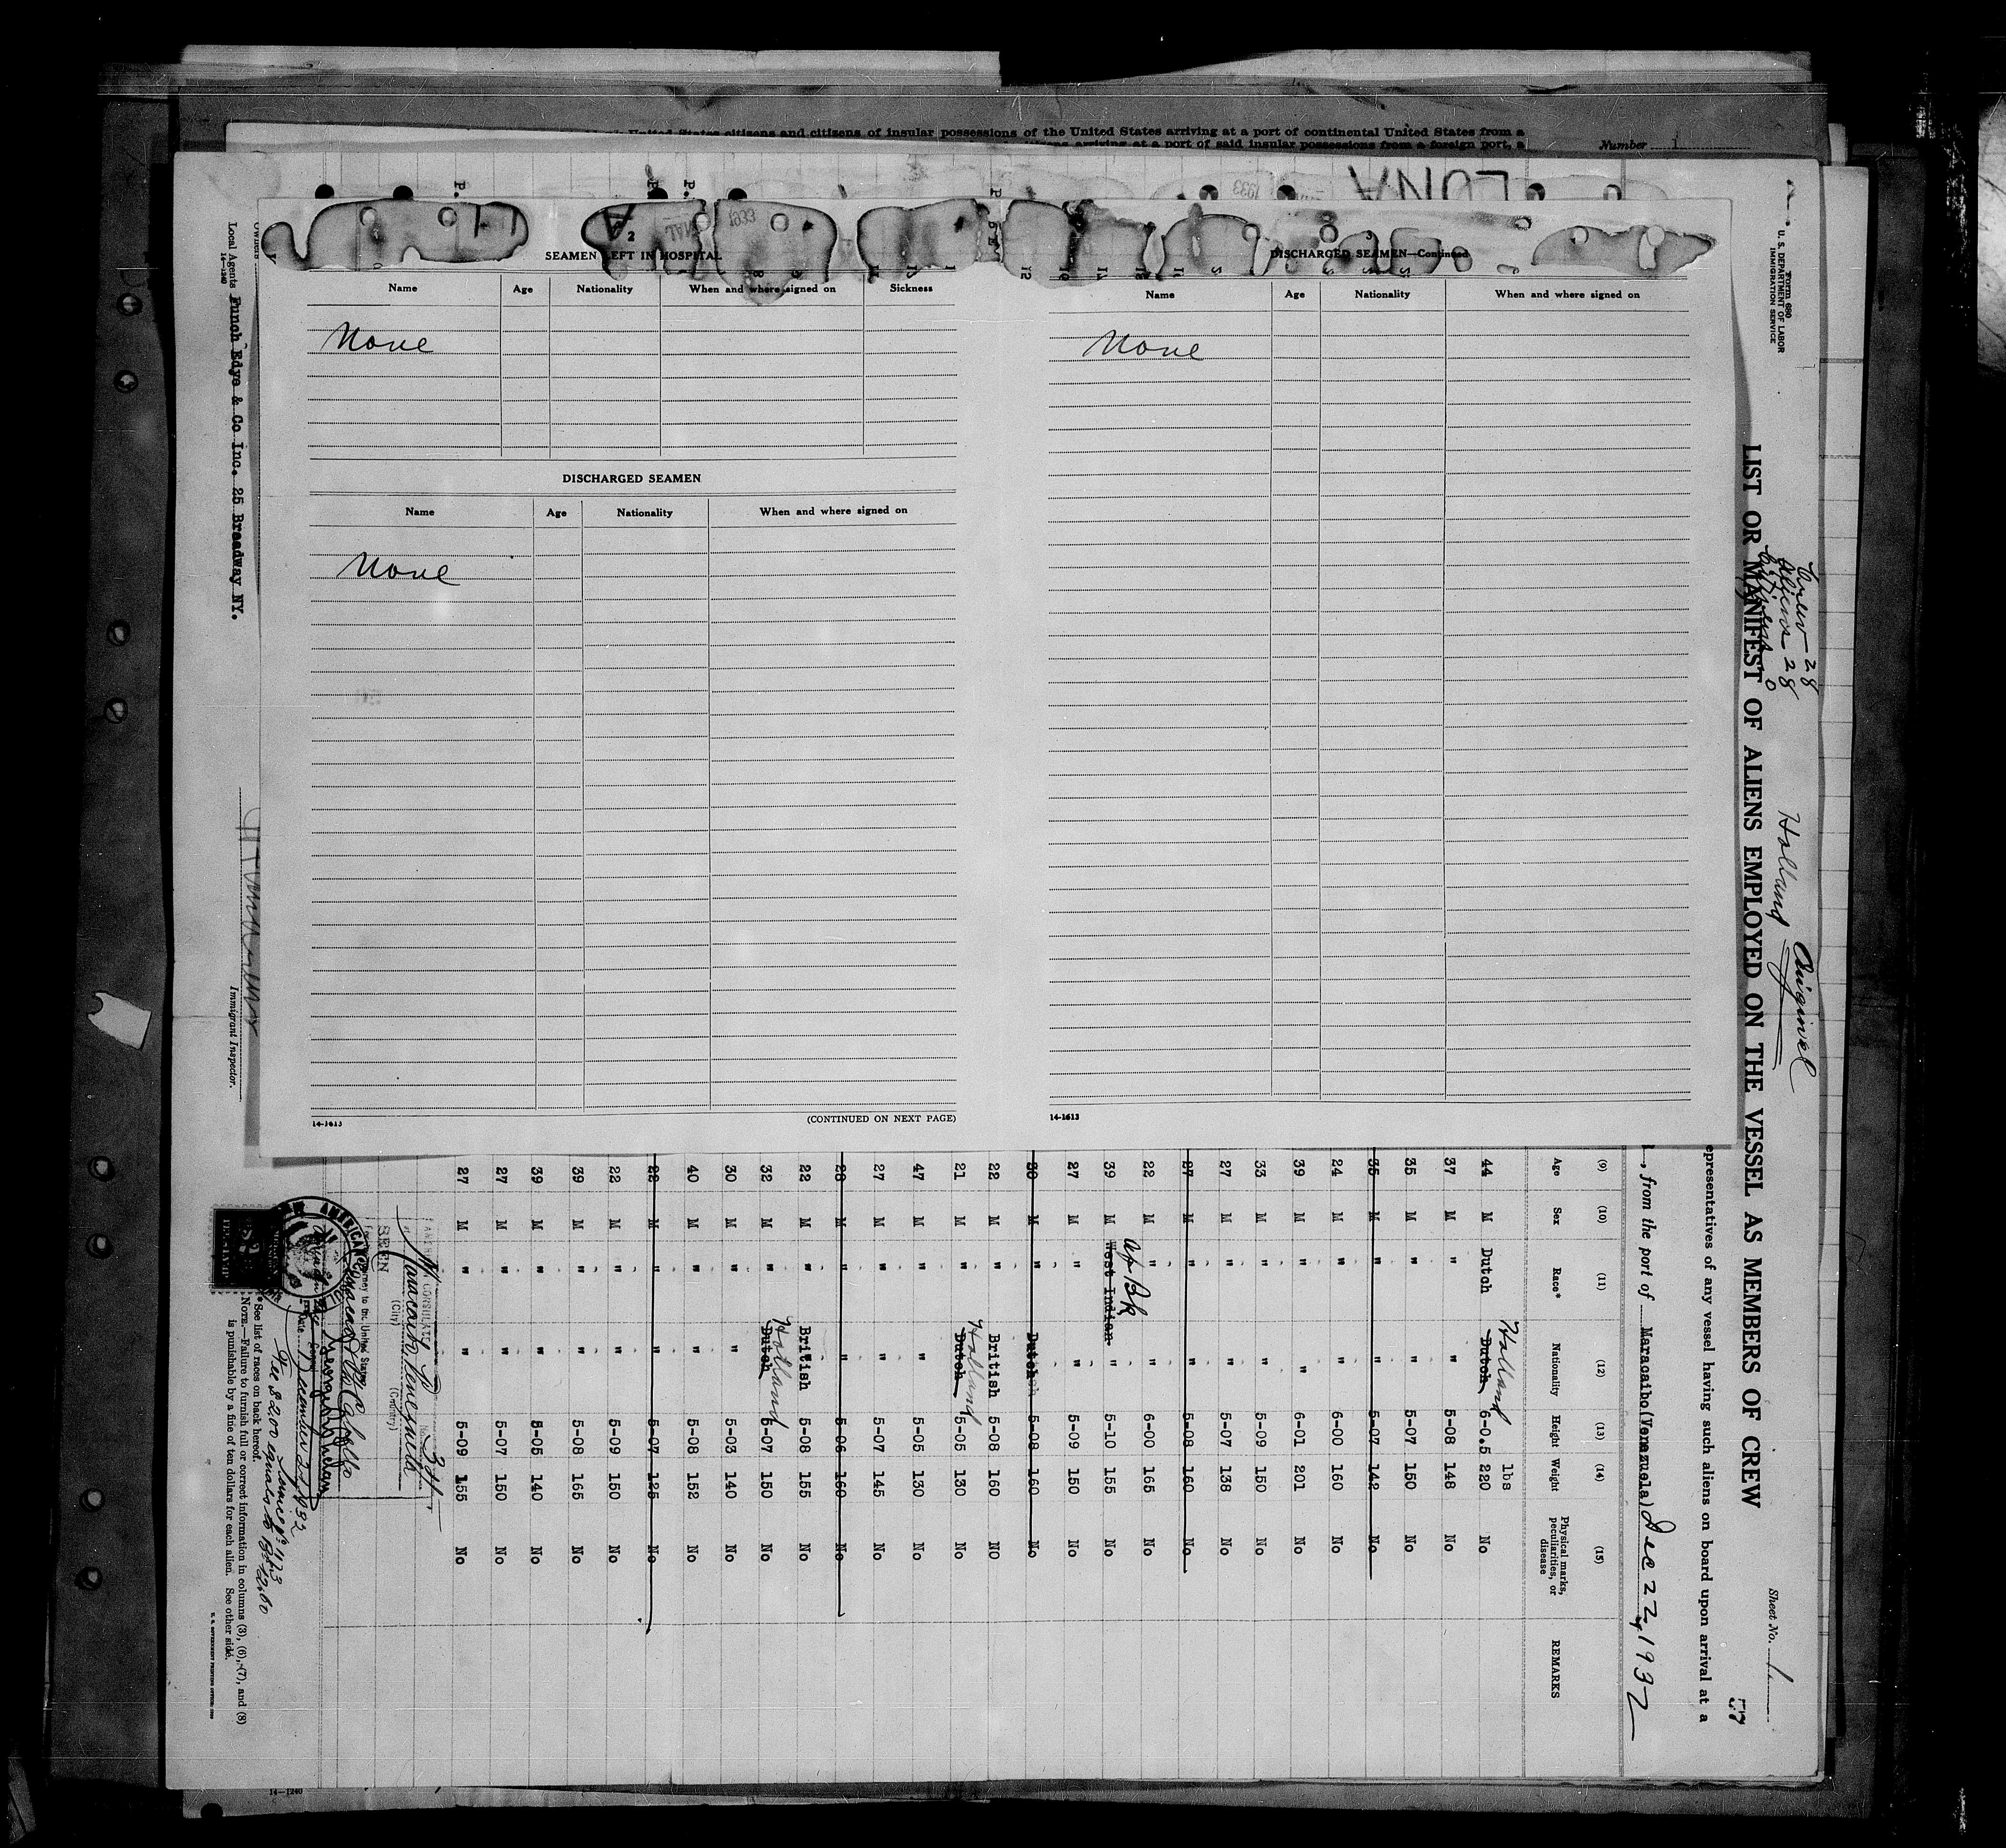 United States citizens and citizens of insular possessions of the United States arriving at a port of continental United States from a
arriving at a port of said insular possessions from a foreign port, a
Number 1
LUNA
1933
2
SEAMEN LEFT IN HOSPITAL
Name Age Nationality When and where signed on Sickness
None
DISCHARGED SEAMEN
Name Age Nationality When and where signed on
None
14-1613 (CONTINUED ON NEXT PAGE)
3
DISCHARGED SEAMEN—Continued
Name Age Nationality When and where signed on
None
14-1613
Form 680
U. S. DEPARTMENT OF LABOR
IMMIGRATION SERVICE
Crew 28
Aliens 28
Holland Original
Sheet No. 1
57
LIST OR MANIFEST OF ALIENS EMPLOYED ON THE VESSEL AS MEMBERS OF CREW
representatives of any vessel having such aliens on board upon arrival at a
, from the port of Maracaibo (Venezuela) Dec 22, 1932
(9) (10) (11) (12) (13) (14) (15)
Age Sex Race* Nationality Height Weight Physical marks, peculiarities, or disease REMARKS
lbs
44 M Dutch Dutch Holland 6-0.5 220 No
37 M " " 5-08 148 No
35 M " " 5-07 150 No
35 M " " 5-07 142 No
24 M " " 6-00 160 No
39 M " " 6-01 201 No
33 M " " 5-09 150 No
27 M " " 5-07 138 No
27 M " " 5-08 160 No
22 M " " 6-00 165 No
39 M West Indian Af Bk " 5-10 155 No
27 M " " 5-09 150 No
30 M Dutch 5-08 160 No
22 M " British 5-08 160 NO
21 M " Dutch Holland 5-05 130 No
47 M " " 5-05 130 No
27 M " " 5-07 145 No
28 M " " 5-06 160 No
22 M " British 5-08 155 No
32 M " Dutch Holland 5-07 150 No
30 M " " 5-03 140 No
40 M " " 5-08 152 No
22 M " " 5-07 125 No
22 M " " 5-09 150 No
39 M " " 5-08 165 No
39 M " " 5-05 140 No
27 M " " 5-07 150 No
27 M " " 5-09 155 No
CONSULATE
Maracaibo Venezuela
(City) (Country)
SEEN
December 22, 1932
Service No. 1123
Fee $2.00 equals to Bs 12.60
* See list of races on back hereof.
NOTE.—Failure to furnish full or correct information in columns (3), (6), (7), and (8)
is punishable by a fine of ten dollars for each alien. See other side.
Owners
Local Agents Funch Edye & Co Inc. 25 Broadway NY.
14-1240
Immigrant Inspector.
14-1240